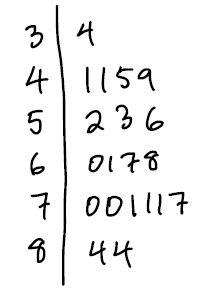 3 | 4
4 | 1159
5 | 236
6 | 0178
7 | 001117
8 | 44